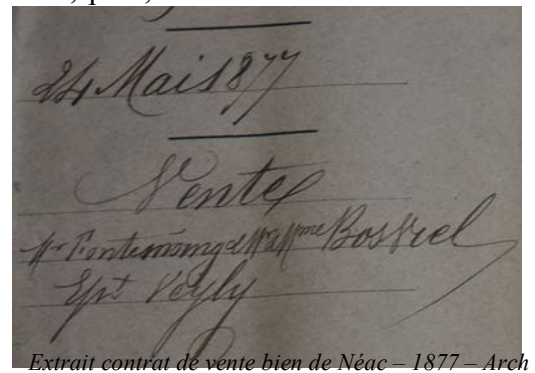 24 Mai 1877
Vente
Mr Fontemoing & Mr & Mme Bosviel
Ept
Extrait contrat de vente bien de Néac – 1877 – Arch